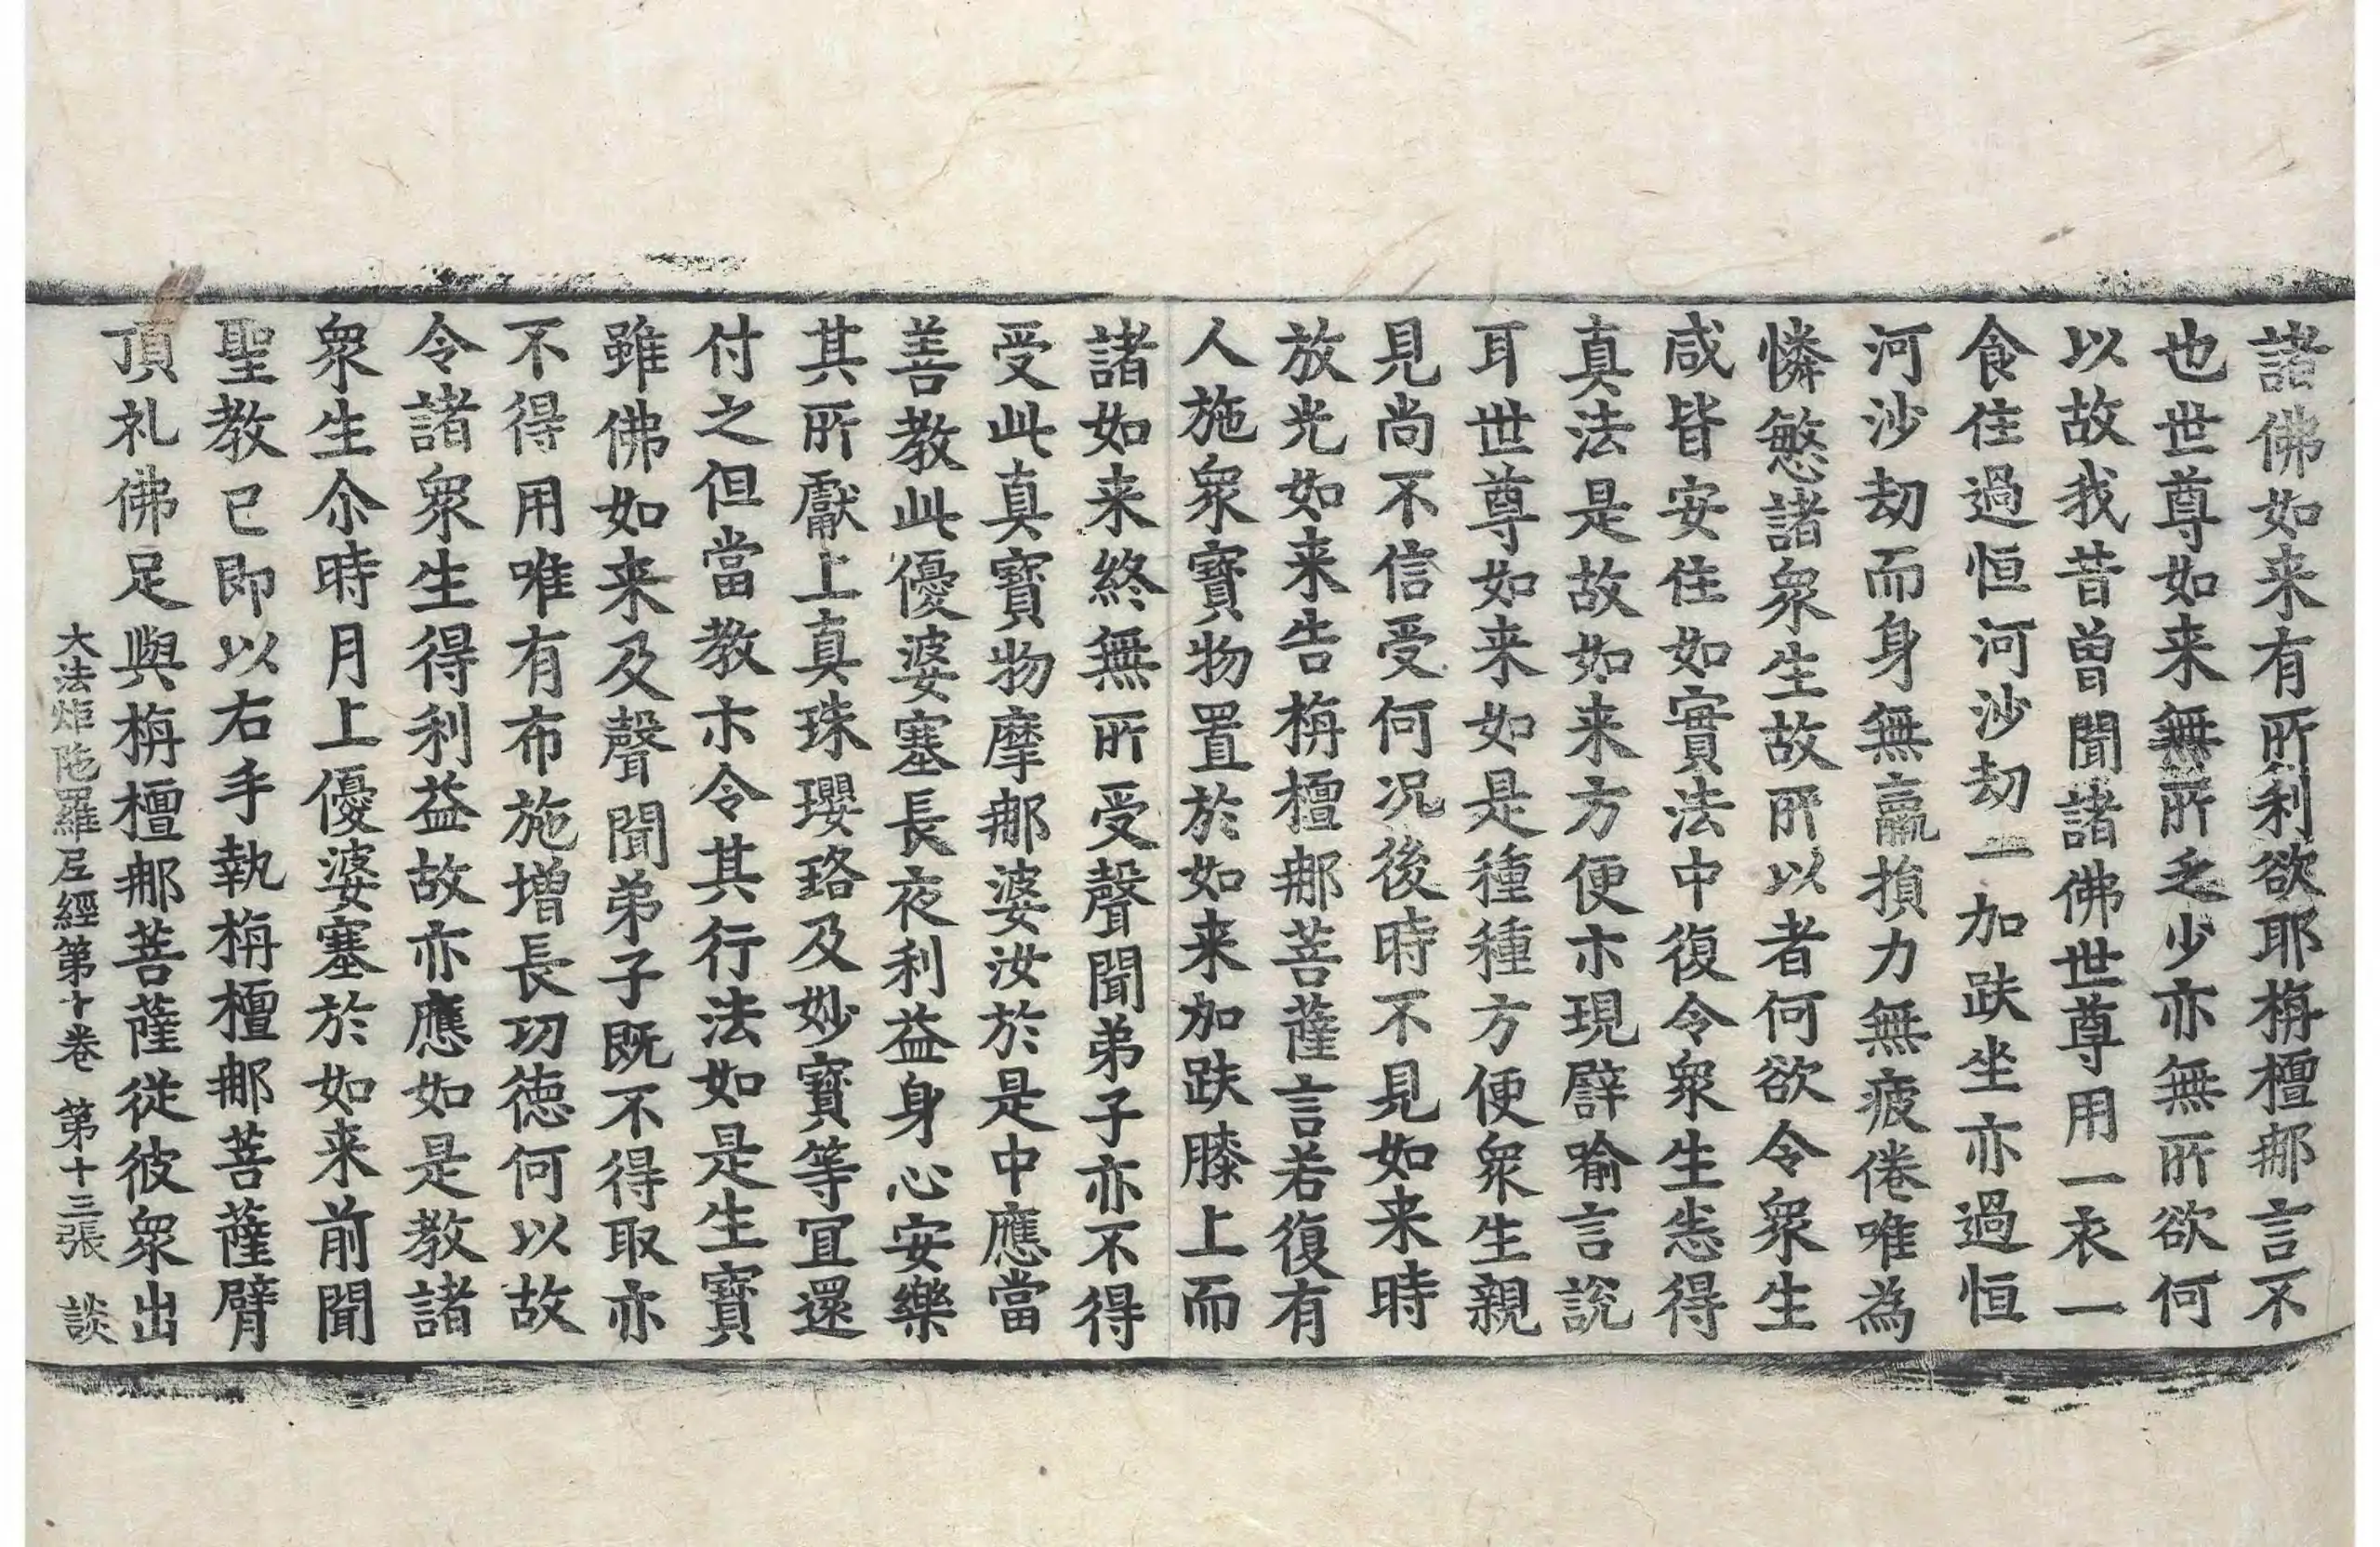 諸佛如来有所利欲耶栴檀那言不
也世尊如来無所乏少亦無所欲何
以故我昔曽聞諸佛世尊用一衣一
食住過恒河沙劫一加趺坐亦過恒
河沙劫而身無羸損力無疲倦唯為
憐慜諸衆生故所以者何欲令衆生
咸皆安住如實法中復令衆生恙得
真法是故如来方便示現譬喻言說
耳世尊如来如是種種方便衆生親
見尚不信受何况後時不見如来時
放光如来告栴檀那菩薩言若復有
人施衆寳物置於如来加趺膝上而
諸如来終無所受聲聞弟子亦不得
受此真寳物摩那婆汝於是中應當
善教此優婆塞長夜利益身心安樂
其所獻上真珠瓔珞及妙寳等冝還
付之但當教示令其行法如是生寳
雖佛如来及聲聞弟子既不得取亦
不得用唯有布施增長功德何以故
令諸衆生得利益故亦應如是教諸
衆生尒時月上優婆塞於如来前聞
聖教已即以右手執栴檀那菩薩臂
頂礼佛足與栴檀那菩薩從彼衆出
大法炬陁羅尼經第十卷 第十三張 談